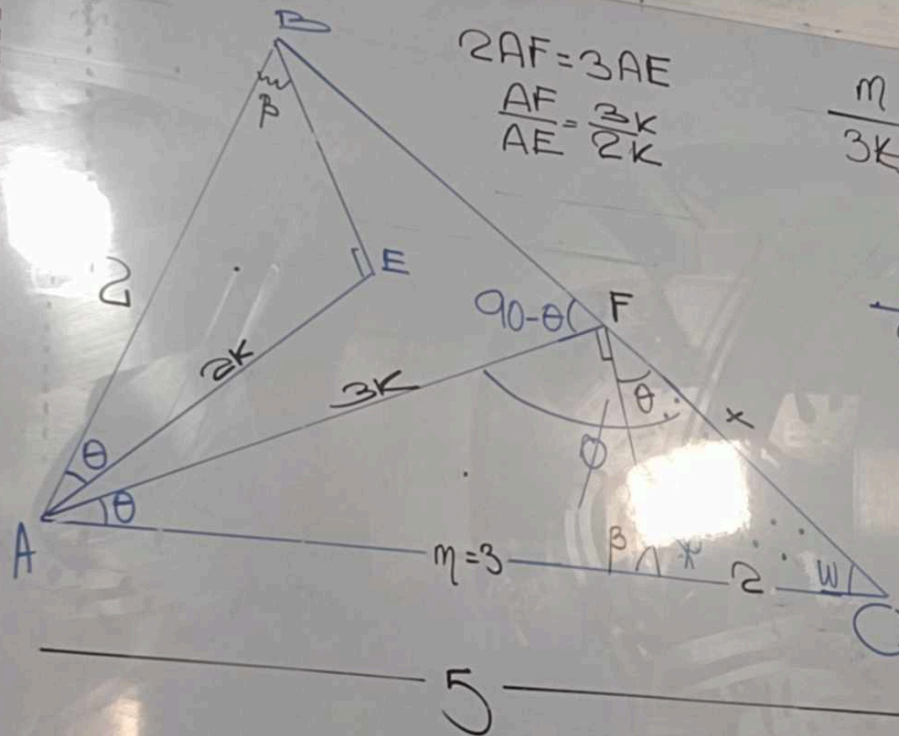 B
2AF=3AE
AF/AE=3K/2K
m/3K
β
2
E
90-θ
F
2K
3K
θ
x
θ
θ
A
m=3
β
x
2
w
C
5